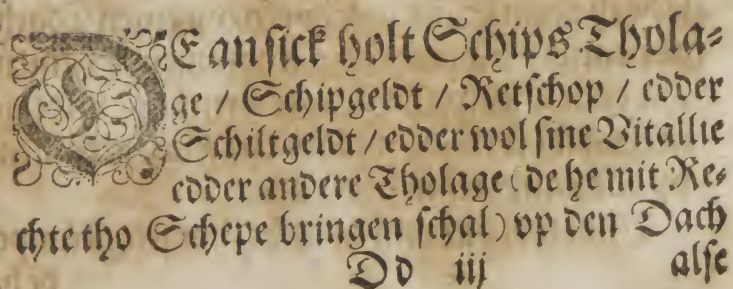 DE an sick holt Schips Thola=
ge / Schipgeldt / Retschop / edder
Schiltgeldt / edder wol sine Vitallie
edder andere Tholage (de he mit Re=
chte tho Schepe bringen schal) vp den Dach
Dd iij alse